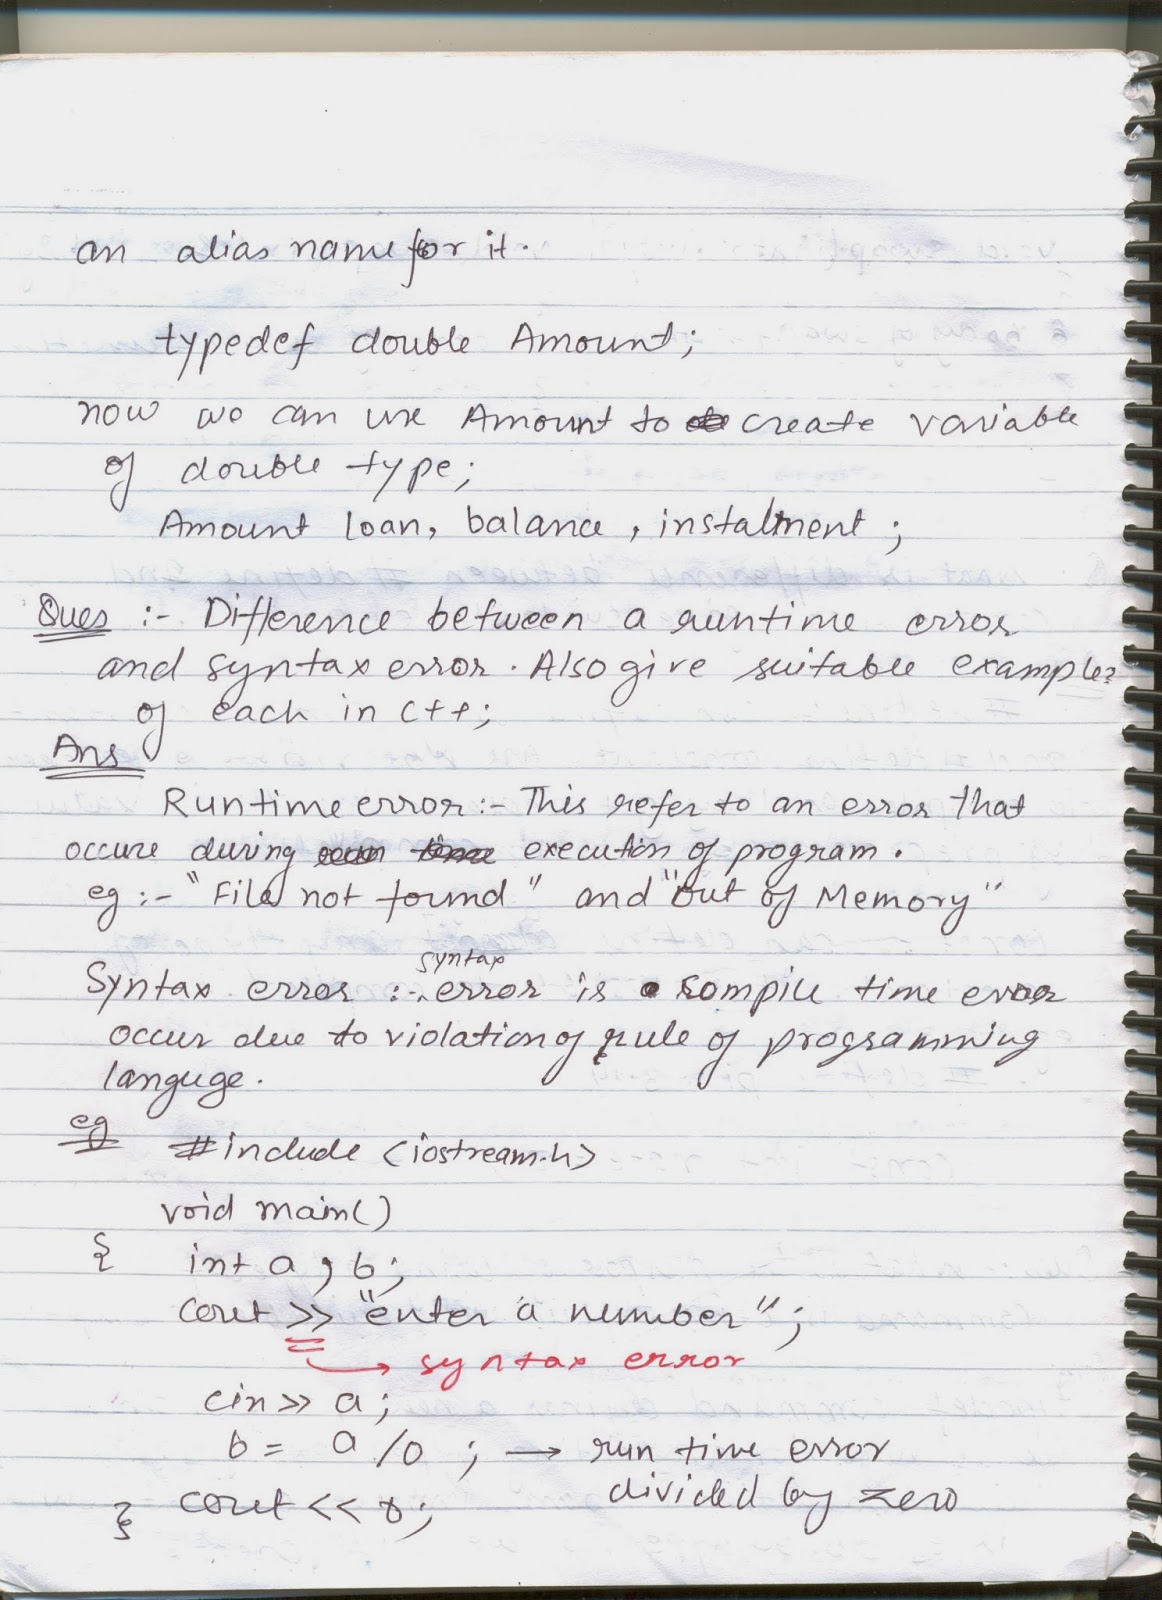 an alias name for it.
typedef double Amount;
now we can use Amount to create variable
of double type;
Amount loan, balance, instalment;
Ques :- Difference between a runtime error
and syntax error. Also give suitable examples
of each in C++;
Ans
Runtime error :- This refer to an error that
occure during run time execution of program.
eg :- "File not found" and "Out of Memory"
Syntax error :- syntax error is compile time error
occur due to violation of rule of programming
languge.
eg #include <iostream.h>
void main()
{ int a, b;
cout >> "enter a number";
→ syntax error
cin >> a;
b = a /0 ; → run time error
divided by zero
} cout <<